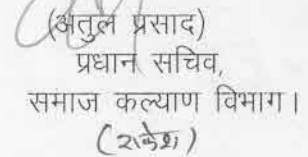 (अतुल प्रसाद)
प्रधान सचिव,
समाज कल्याण विभाग।
(राकेश)